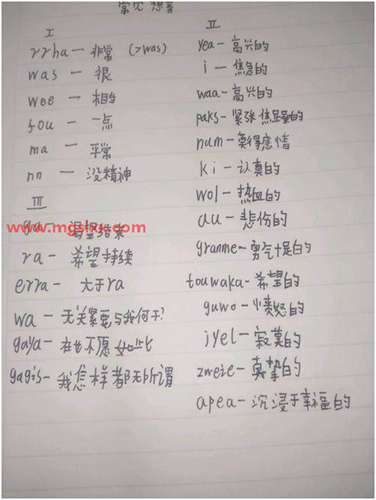 常见
I
rrha — 非常 (>was)
was — 很
wee — 相当
fou — 一点
ma — 平常
nn — 没精神
III
ga- 渴望结束
ra — 希望持续
erra — 大于ra
wa — 无关紧要与我何干?
gaya — 在也不愿如此
gagis — 我怎样都无所谓
II
yea — 高兴的
i — 焦急的
waa — 高兴的
paks — 紧张焦虑的
num — 莫得感情
ki — 认真的
wol — 热血的
au — 悲伤的
granme — 勇气十足的
touwaka — 希望的
guwo — 愤怒的
jyel — 寂寞的
zweie — 真挚的
apea — 沉浸于幸福的